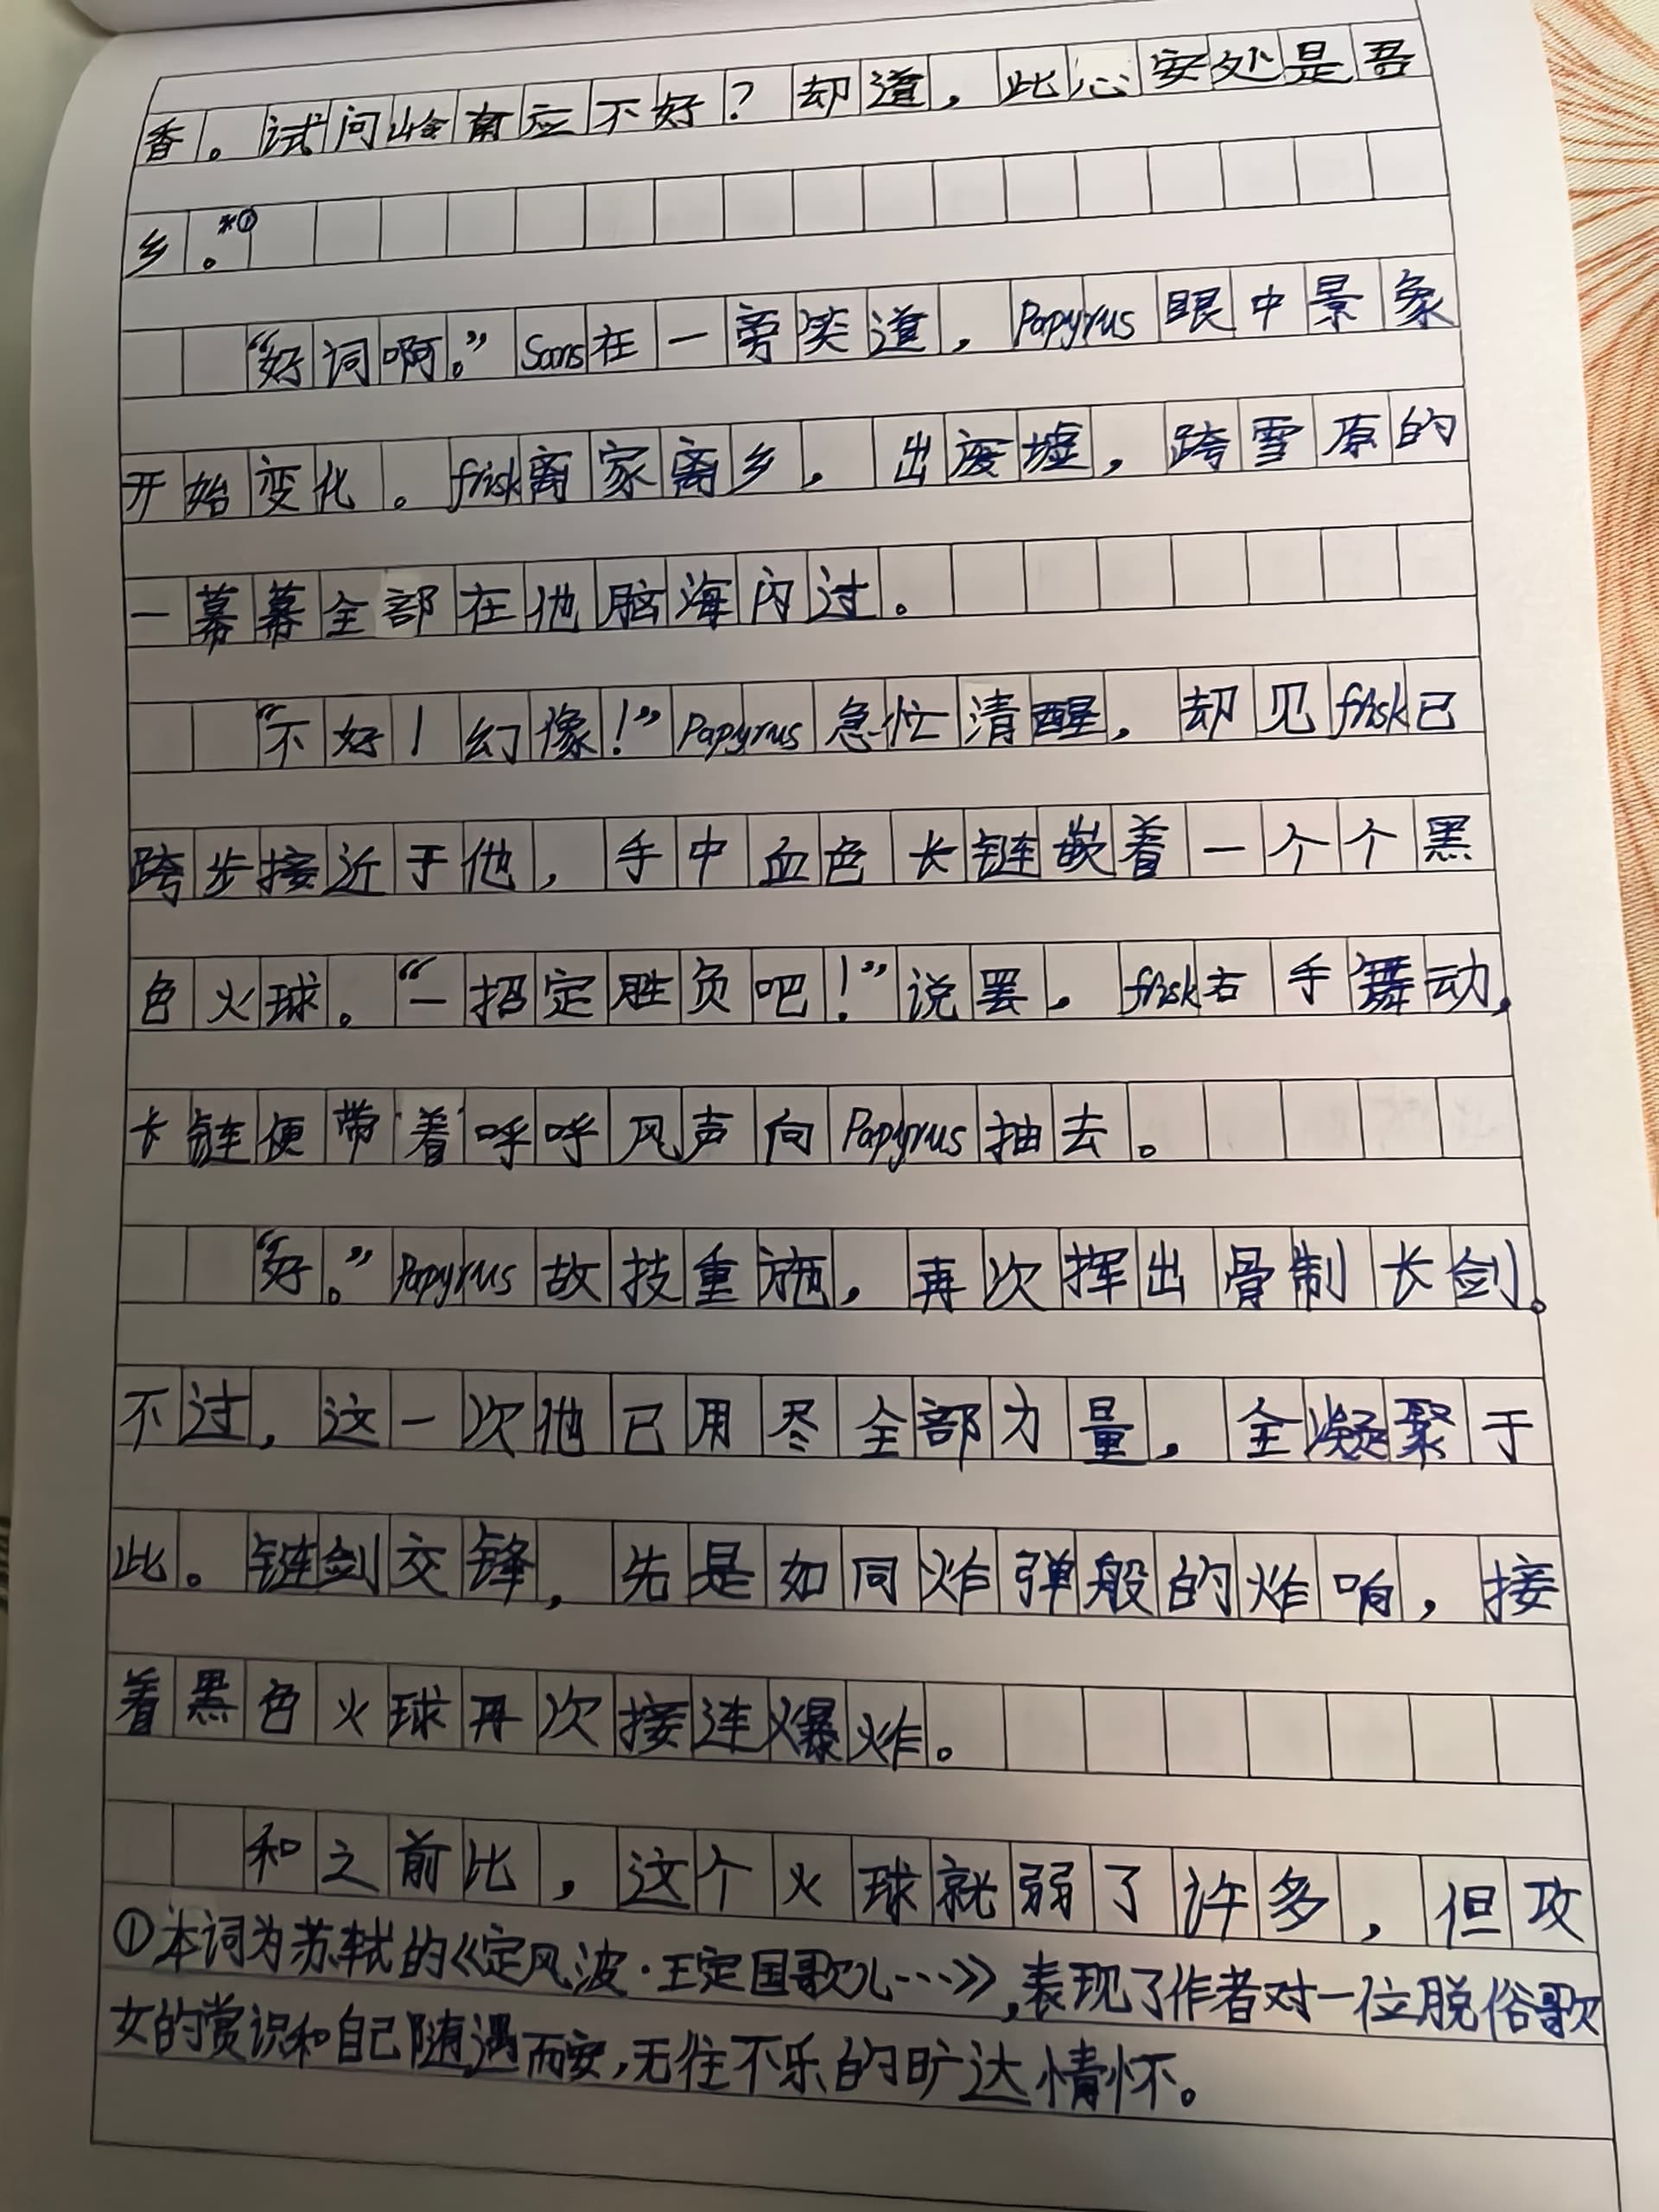 香。试问岭南应不好？却道，此心安处是吾
乡。*①
“好词啊。”Sans在一旁笑道，Papyrus眼中景象
开始变化。frisk离家离乡，出废墟，跨雪原的
一幕幕全部在他脑海闪过。
“不好！幻像！”Papyrus急忙清醒，却见frisk已
跨步接近于他，手中血色长链嵌着一个个黑
色火球。“一招定胜负吧！”说罢，frisk右手舞动，
长链便带着呼呼风声向Papyrus抽去。
“好。”Papyrus故技重施，再次挥出骨制长剑。
不过，这一次他已用尽全部力量，全凝聚于
此。链剑交锋，先是如同炸弹般的炸响，接
着黑色火球再次接连爆炸。
和之前比，这个火球就弱了许多，但攻
①本词为苏轼的《定风波·王定国歌儿…》，表现了作者对一位脱俗歌
女的赏识和自己随遇而安，无往不乐的旷达情怀。